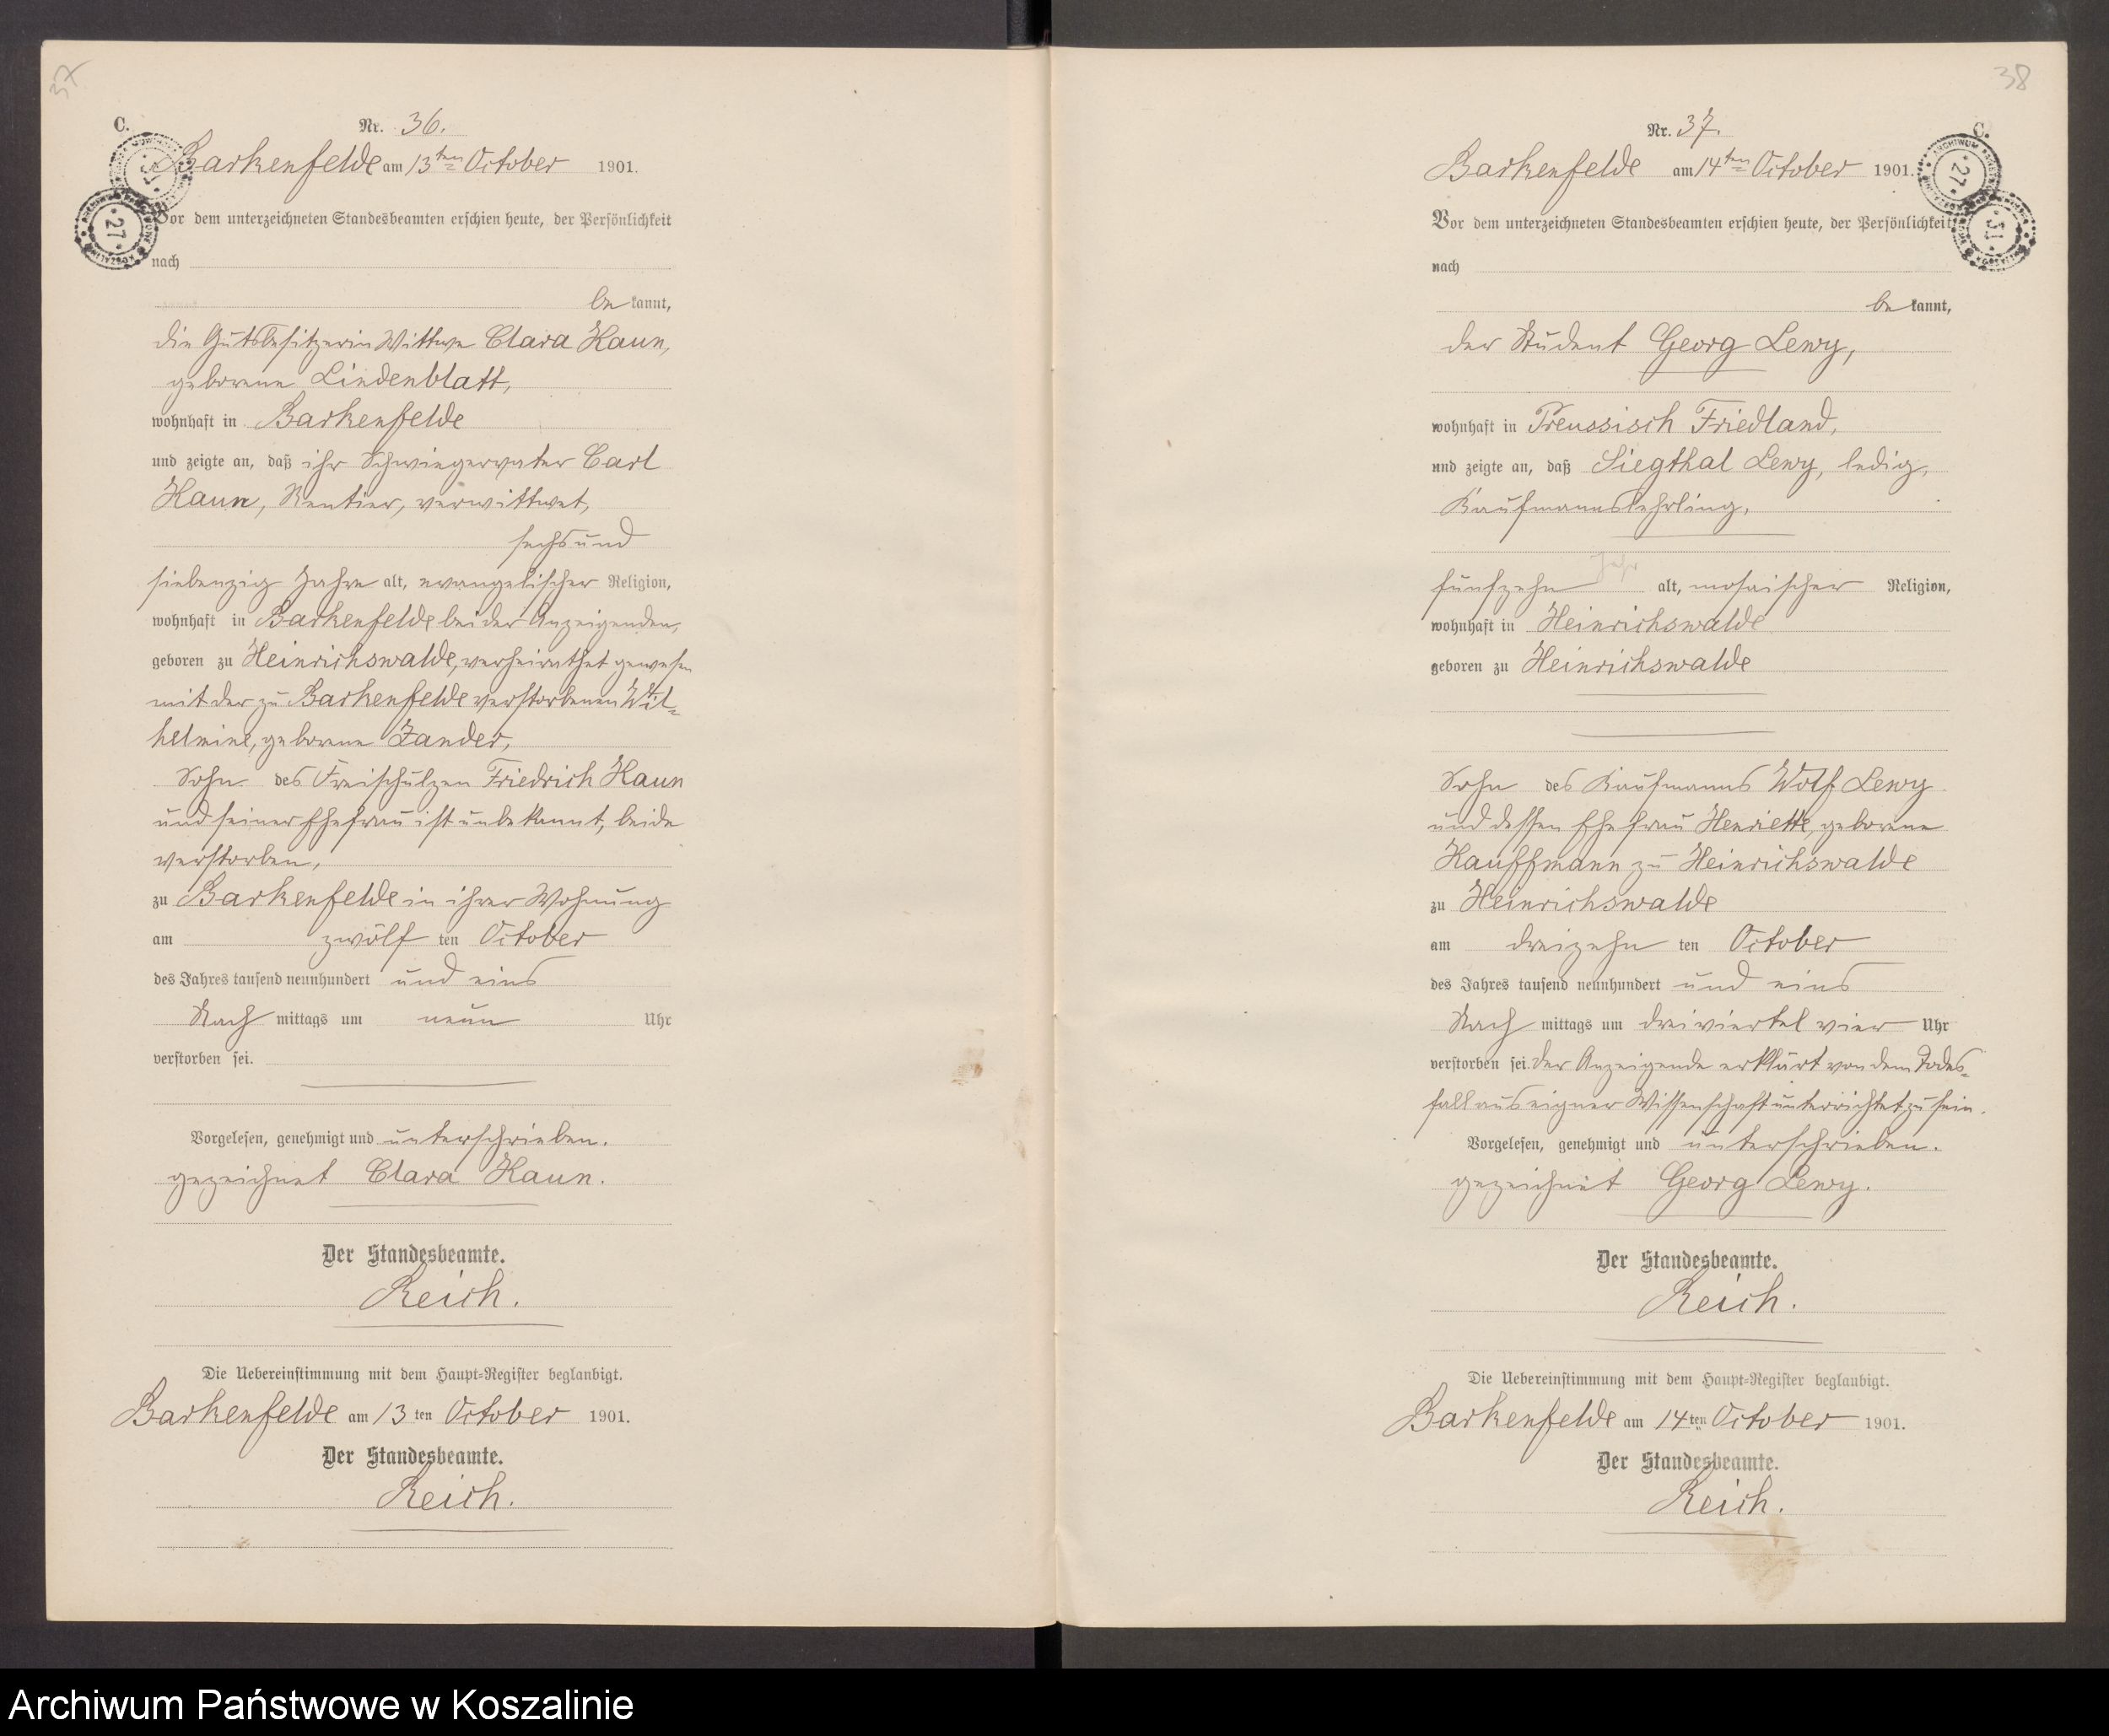 37
C.
Nr. 36.
Barkenfelde am 13ten October 1901.
Vor dem unterzeichneten Standesbeamten erschien heute, der Persönlichkeit
nach
be kannt,
die Gutsbesitzerin Wittwe Clara Haun,
geborene Lindenblatt,
wohnhaft in Barkenfelde
und zeigte an, daß ihr Schwiegervater Carl
Haun, Rentier, verwittwet,
sechsund
siebenzig Jahre alt, evangelischer Religion,
wohnhaft in Barkenfelde bei der Anzeigenden,
geboren zu Heinrichswalde, verheirathet gewesen
mit der zu Barkenfelde verstorbenen Wil-
helmine, geborene Zander,
Sohn des Freischulzen Friedrich Haun
und seiner Ehefrau ist unbekannt, beide
verstorben,
zu Barkenfelde in ihrer Wohnung
am zwölf ten October
des Jahres tausend neunhundert und eins
Nach mittags um neun Uhr
verstorben sei.
Vorgelesen, genehmigt und unterschrieben.
gezeichnet Clara Haun.
Der Standesbeamte.
Reich.
Die Uebereinstimmung mit dem Haupt-Register beglaubigt.
Barkenfelde am 13 ten October 1901.
Der Standesbeamte.
Reich.
38
C.
Nr. 37.
Barkenfelde am 14ten October 1901.
Vor dem unterzeichneten Standesbeamten erschien heute, der Persönlichkeit
nach
be kannt,
der Student Georg Lewy,
wohnhaft in Preussisch Friedland,
und zeigte an, daß Siegthal Lewy, ledig,
Kaufmannslehrling,
Jahr
fünfzehn alt, mosaischer Religion,
wohnhaft in Heinrichswalde
geboren zu Heinrichswalde
Sohn des Kaufmanns Wolf Lewy
und dessen Ehefrau Henriette, geborene
Kauffmann zu Heinrichswalde
zu Heinrichswalde
am dreizehn ten October
des Jahres tausend neunhundert und eins
Nach mittags um dreiviertel vier Uhr
verstorben sei. Der Anzeigende erklärt von dem Todes-
fall aus eigner Wissenschaft unterrichtet zu sein.
Vorgelesen, genehmigt und unterschrieben.
gezeichnet Georg Lewy.
Der Standesbeamte.
Reich.
Die Uebereinstimmung mit dem Haupt-Register beglaubigt.
Barkenfelde am 14 ten October 1901.
Der Standesbeamte.
Reich.
Archiwum Państwowe w Koszalinie